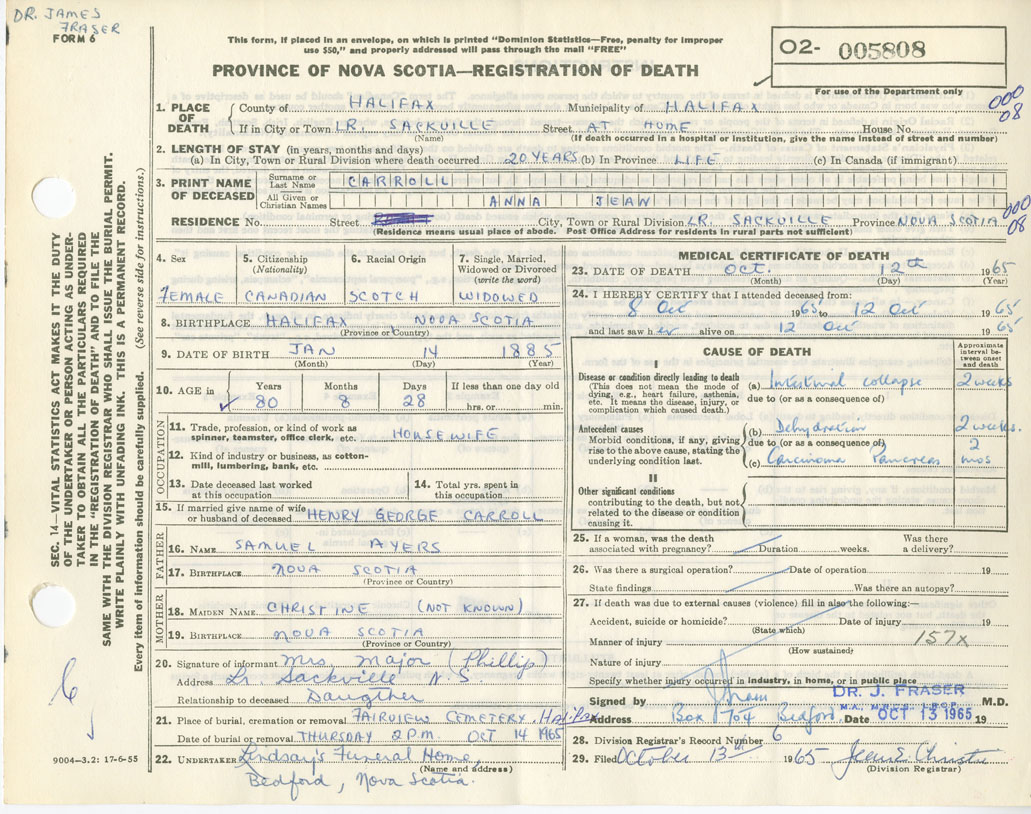 DR. JAMES
FRASER
FORM 6
This form, if placed in an envelope, on which is printed "Dominion Statistics—Free, penalty for improper
use $50," and properly addressed will pass through the mail "FREE"
PROVINCE OF NOVA SCOTIA—REGISTRATION OF DEATH
O2- 005808
For use of the Department only
000
08
1. PLACE OF DEATH { County of HALIFAX Municipality of HALIFAX
If in City or Town LR. SACKVILLE Street AT HOME House No.
(Name) (If death occurred in a hospital or institution, give the name instead of street and number)
2. LENGTH OF STAY (in years, months and days)
(a) In City, Town or Rural Division where death occurred 20 YEARS (b) In Province LIFE (c) In Canada (if immigrant)
3. PRINT NAME OF DECEASED { Surname or Last Name CARROLL
All Given or Christian Names ANNA JEAN
000
08
RESIDENCE No. Street City, Town or Rural Division LR. SACKVILLE Province NOVA SCOTIA
(Residence means usual place of abode. Post Office Address for residents in rural parts not sufficient)
SEC. 14—VITAL STATISTICS ACT MAKES IT THE DUTY
OF THE UNDERTAKER OR PERSON ACTING AS UNDER-
TAKER TO OBTAIN ALL THE PARTICULARS REQUIRED
IN THE "REGISTRATION OF DEATH" AND TO FILE THE
SAME WITH THE DIVISION REGISTRAR WHO SHALL ISSUE THE BURIAL PERMIT.
WRITE PLAINLY WITH UNFADING INK. THIS IS A PERMANENT RECORD.
Every item of information should be carefully supplied. (See reverse side for instructions.)
4. Sex 5. Citizenship (Nationality) 6. Racial Origin 7. Single, Married, Widowed or Divorced (write the word)
FEMALE CANADIAN SCOTCH WIDOWED
8. BIRTHPLACE HALIFAX, NOVA SCOTIA
(Province or Country)
9. DATE OF BIRTH JAN 14 1885
(Month) (Day) (Year)
10. AGE in Years Months Days If less than one day old
80 8 28 hrs. or min.
OCCUPATION
11. Trade, profession, or kind of work as
spinner, teamster, office clerk, etc. HOUSEWIFE
12. Kind of industry or business, as cotton-
mill, lumbering, bank, etc.
13. Date deceased last worked
at this occupation
14. Total yrs. spent in
this occupation
15. If married give name of wife
or husband of deceased HENRY GEORGE CARROLL
FATHER
16. NAME SAMUEL AYERS
17. BIRTHPLACE NOVA SCOTIA
(Province or Country)
MOTHER
18. MAIDEN NAME CHRISTINE (NOT KNOWN)
19. BIRTHPLACE NOVA SCOTIA
(Province or Country)
20. Signature of informant Mrs. Major (Phillip)
Address Lr. Sackville N.S.
Relationship to deceased Daugther
21. Place of burial, cremation or removal FAIRVIEW CEMETERY, Halifax
Date of burial or removal THURSDAY 2 P.M. OCT 14 1965
22. UNDERTAKER Lindsay's Funeral Home,
(Name and address)
Bedford, Nova Scotia.
6
9004-3.2: 17-6-55
MEDICAL CERTIFICATE OF DEATH
23. DATE OF DEATH Oct. 12th 1965
(Month) (Day) (Year)
24. I HEREBY CERTIFY that I attended deceased from:
8 Oct 1965 to 12 Oct 1965
and last saw her alive on 12 Oct 1965
CAUSE OF DEATH
Approximate
interval be-
tween onset
and death
I
Disease or condition directly leading to death
(This does not mean the mode of
dying, e.g., heart failure, asthenia,
etc. It means the disease, injury, or
complication which caused death.)
(a) Intestinal collapse 2 weeks
due to (or as a consequence of)
Antecedent causes
Morbid conditions, if any, giving
rise to the above cause, stating the
underlying condition last.
(b) Dehydration 2 weeks.
due to (or as a consequence of)
(c) Carcinoma Pancreas 2 mos
II
Other significant conditions
contributing to the death, but not
related to the disease or condition
causing it.
25. If a woman, was the death
associated with pregnancy? Duration weeks. Was there
a delivery?
26. Was there a surgical operation? Date of operation 19
State findings Was there an autopsy?
27. If death was due to external causes (violence) fill in also the following:—
Accident, suicide or homicide? Date of injury 19
(State which)
Manner of injury 157x
(How sustained)
Nature of injury
Specify whether injury occurred in industry, in home, or in public place
Signed by J Fraser DR. J. FRASER M.D.
Address Box 1704 Bedford. Date OCT 13 1965 19
28. Division Registrar's Record Number 6
29. Filed October 13th 1965 Jean E. Christie
(Division Registrar)